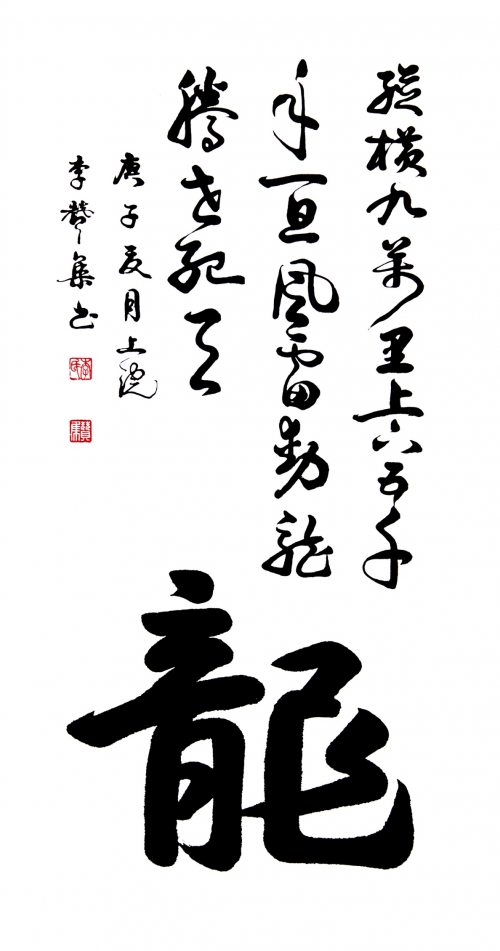 縱橫九萬里上下五千
年一旦風雷動龍
騰世紀天
庚子夏月上浣
李贊集书
龍